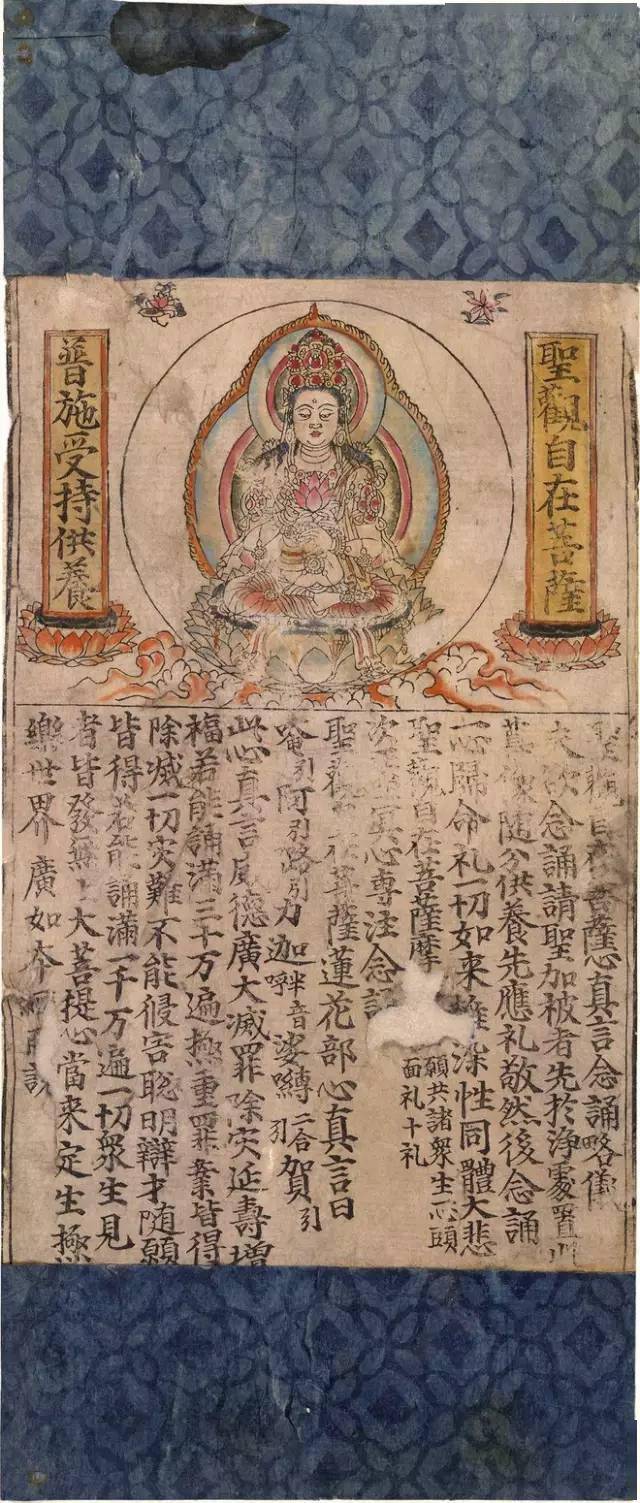 聖觀自在菩薩
普施受持供養
聖觀自在菩薩心真言念誦略儀
夫欲念誦請聖加被者先於淨處置此
尊像隨分供養先應礼敬然後念誦
一心歸命礼一切如来離染性同體大悲
聖觀自在菩薩摩 願共諸衆生一心頭面礼十礼
次冥心專注念誦
聖觀自在菩薩蓮花部心真言曰
唵引阿引路引力迦半音呼娑嚩二合引賀引
此心真言威德廣大滅罪除灾延壽增
福若能誦滿三十万遍極重罪業皆得
除滅一切灾難不能侵害聡明辯才隨願
皆得若能誦滿一千万遍一切衆生見
者皆發無上大菩提心當来定生極
樂世界廣如本經所說